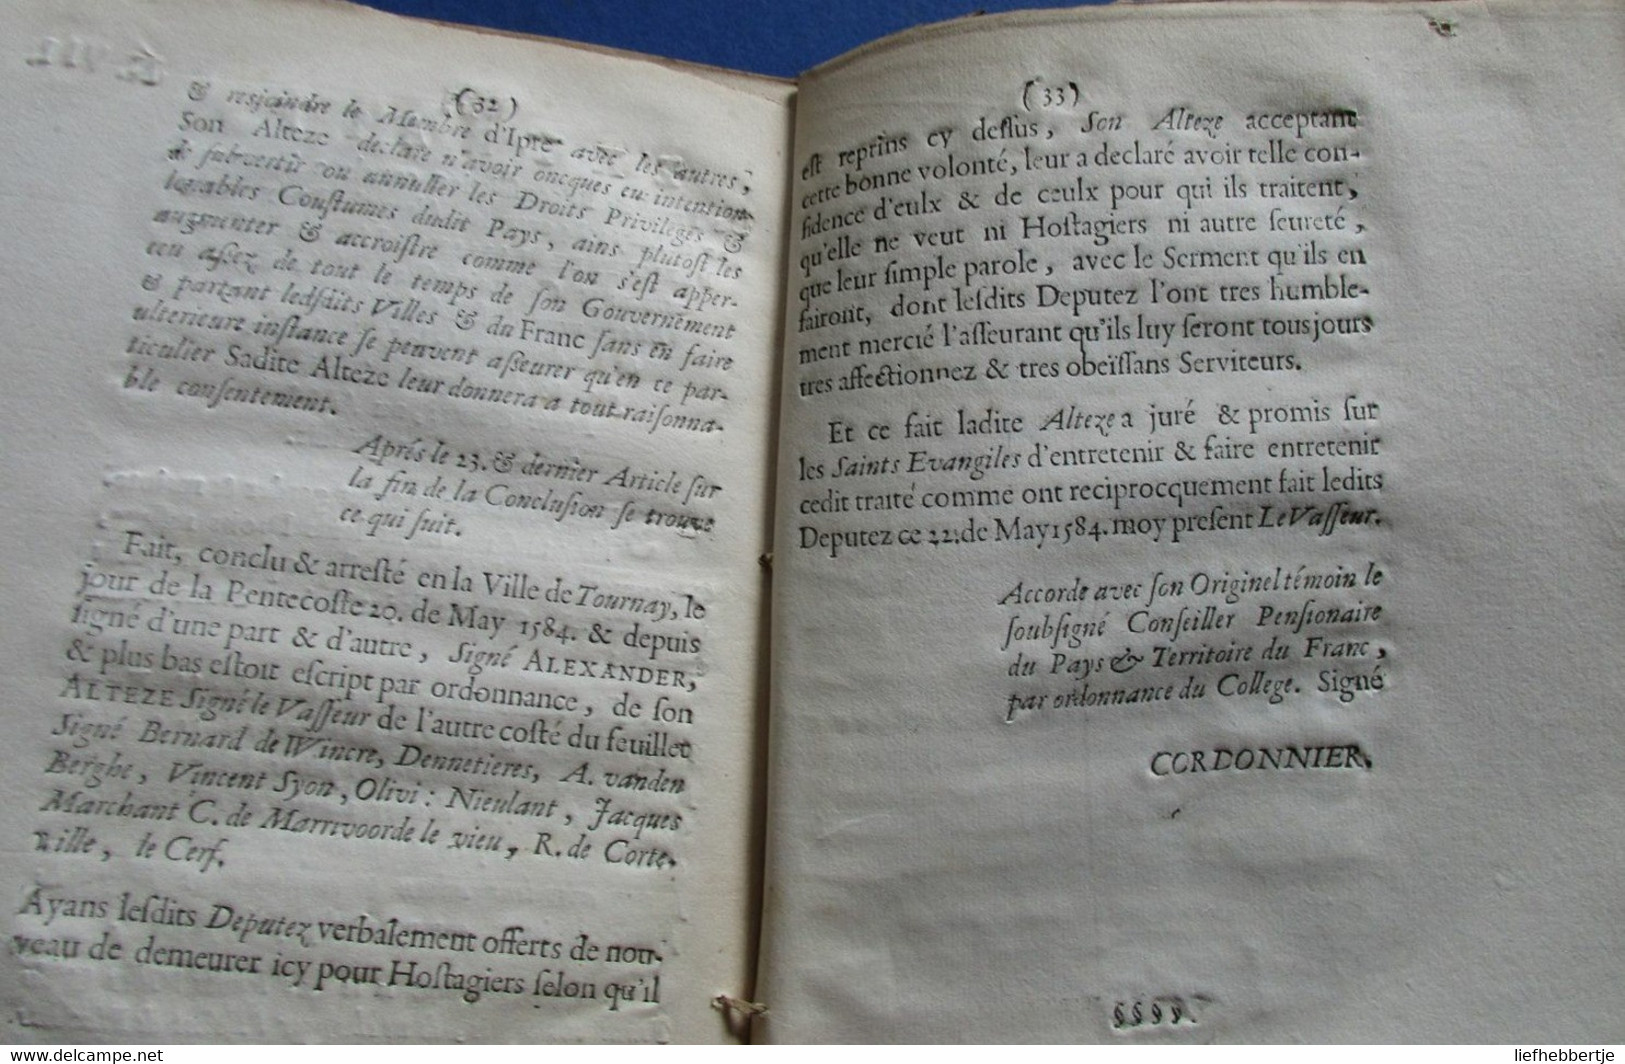 (32)
& resjoindre le Membre d'Ipre avec les autres,
Son Alteze declare n'avoir oncques eu intention
de subvertir ou annuller les Droits Privileges &
loüables Coustumes dudit Pays, ains plutost les
augmenter & accroistre comme l'on s'est apper-
ceu assez de tout le temps de son Gouvernement
& partant lesdits Villes & du Franc sans en faire
ulterieure instance se peuvent asseurer qu'en ce par-
ticulier Sadite Alteze leur donnera a tout raisonna-
ble consentement.
Aprés le 23. & dernier Article sur
la fin de la Conclusion se trouve
ce qui suit.
Fait, conclu & arresté en la Ville de Tournay, le
jour de la Pentecoste 20. de May 1584. & depuis
signé d'une part & d'autre, Signé ALEXANDER,
& plus bas estoit escript par ordonnance, de son
ALTEZE Signé le Vasseur de l'autre costé du feuillet
Signé Bernard de Wincre, Dennetieres, A. vanden
Berghe, Vincent Syon, Olivi: Nieulant, Jacques
Marchant C. de Marrivoorde le vieu, R. de Corte-
uille, le Cerf.
Ayans lesdits Deputez verbalement offerts de nou-
veau de demeurer icy pour Hostagiers selon qu'il
(33)
est reprins cy dessus, Son Alteze acceptant
cette bonne volonté, leur a declaré avoir telle con-
fidence d'eulx & de ceulx pour qui ils traitent,
qu'elle ne veut ni Hostagiers ni autre seureté,
que leur simple parole, avec le Serment qu'ils en
fairont, dont lesdits Deputez l'ont tres humble-
ment mercié l'asseurant qu'ils luy seront tousjours
tres affectionnez & tres obeïssans Serviteurs.
Et ce fait ladite Alteze a juré & promis sur
les Saints Evangiles d'entretenir & faire entretenir
cedit traité comme ont reciprocquement fait ledits
Deputez ce 22. de May 1584. moy present Le Vasseur.
Accorde avec son Originel témoin le
soubsigné Conseiller Pensionaire
du Pays & Territoire du Franc,
par ordonnance du College. Signé
CORDONNIER.
§§§§.
delcampe.net
liefhebbertje